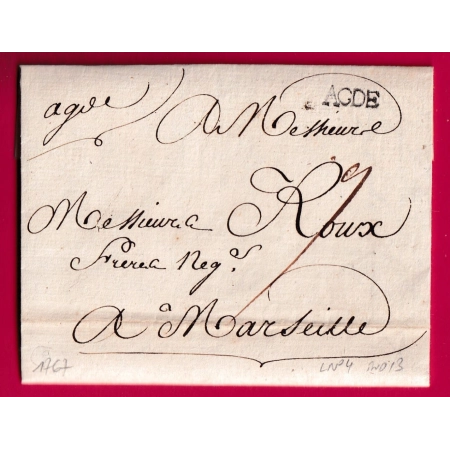 agde AGDE
A Messieurs
Messieurs Roux
freres Negts
A Marseille
1767 LN°4 IND13